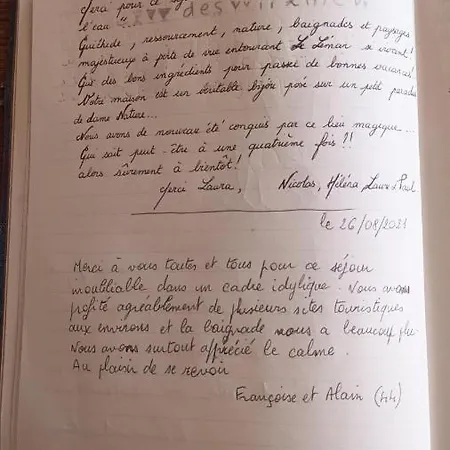 Merci pour ce
l'eau"
Quiétude, ressourcement, nature, baignades et paysages
majestueux à perte de vue entourant Le Lénar se croient!
Que des bons ingrédients pour passer de bonnes vacances!
Votre maison est un véritable bijou posé sur un petit paradis
de dame Nature...
Nous avons de nouveau été conquis par ce lieu magique...
Qui sait peut-être à une quatrième fois!!
alors sûrement à bientôt!
Merci Laura, Nicolas, Héléna, Laura & Paul
le 26/08/2021
Merci à vous toutes et tous pour ce séjour
inoubliable dans un cadre idylique. Nous avons
profité agréablement de plusieurs sites touristiques
aux environs et la baignade nous a beaucoup plu.
Nous avons surtout apprécié le calme.
Au plaisir de se revoir
Françoise et Alain (44)